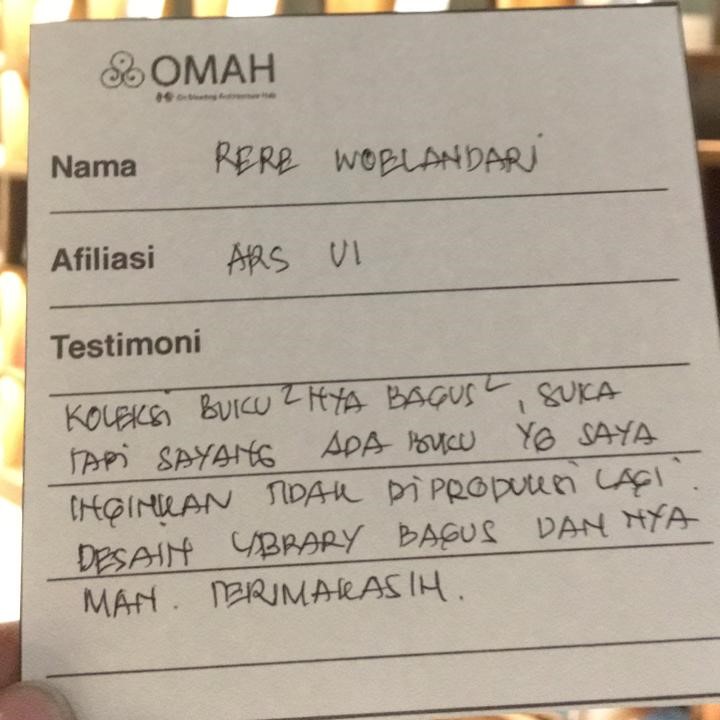 OMAH
Nama RERE WOELANDARI
Afiliasi ARS UI
Testimoni
KOLEKSI BUKU²NYA BAGUS², SUKA
TAPI SAYANG ADA BUKU YG SAYA
INGINKAN TIDAK DIPRODUKSI LAGI.
DESAIN LIBRARY BAGUS DAN NYA
MAN. TERIMAKASIH.